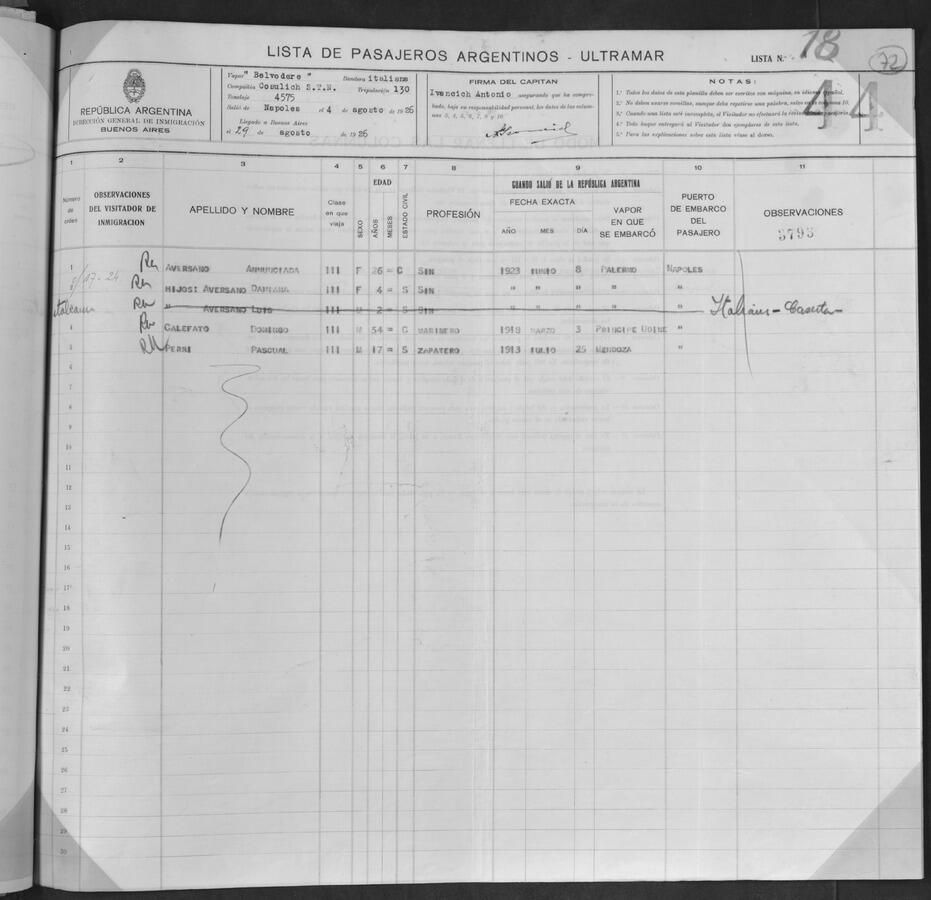 LISTA DE PASAJEROS ARGENTINOS - ULTRAMAR
LISTA N.º 18
72
44
REPÚBLICA ARGENTINA
DIRECCIÓN GENERAL DE INMIGRACIÓN
BUENOS AIRES
Vapor "Belvedere" Bandera italiana
Compañía Cosulich S.T.N. Tripulación 130
Tonelaje 4575
Salió de Napoles el 4 de agosto de 1926
Llegado a Buenos Aires
el 29 de agosto de 1926
FIRMA DEL CAPITAN
Ivancich Antonio asegurando que ha compro-
bado, bajo su responsabilidad personal, los datos de las colum-
nas 3, 4, 5, 6, 7, 8 y 10.
NOTAS:
1.º Todos los datos de esta planilla deben ser escritos con máquina, en idioma español.
2.º No deben usarse comillas, aunque deba repetirse una palabra, salvo en la columna 10.
3.º Cuando una lista esté incompleta, el Visitador no efectuará la
4.º Todo buque entregará al Visitador dos ejemplares de esta lista.
5.º Para las explicaciones sobre esta lista véase al dorso.
1 2 3 4 5 6 7 8 9 10 11
Número de orden
OBSERVACIONES DEL VISITADOR DE INMIGRACIÓN
APELLIDO Y NOMBRE
Clase en que viaja
SEXO
EDAD
AÑOS
MESES
ESTADO CIVIL
PROFESIÓN
CUANDO SALIÓ DE LA REPÚBLICA ARGENTINA
FECHA EXACTA
AÑO MES DÍA
VAPOR EN QUE SE EMBARCÓ
PUERTO DE EMBARCO DEL PASAJERO
OBSERVACIONES
3793
1 AVERSANO ANNUNCIADA III F 26 = C SIN 1923 JUNIO 8 PALERMO NAPOLES
HIJOS: AVERSANO DAMIANA III F 4 = S SIN " " " " "
" AVERSANO LUIS III M 2 = S SIN " " " " " Italiano - Caserta
CALEFATO DOMINGO III M 54 = C MARINERO 1919 MARZO 3 PRINCIPE UDINE "
5 PERRI PASCUAL III M 17 = S ZAPATERO 1913 JULIO 25 MENDOZA "
6
7
8
9
10
11
12
13
14
15
16
17
18
19
20
21
22
23
24
25
26
27
28
29
30